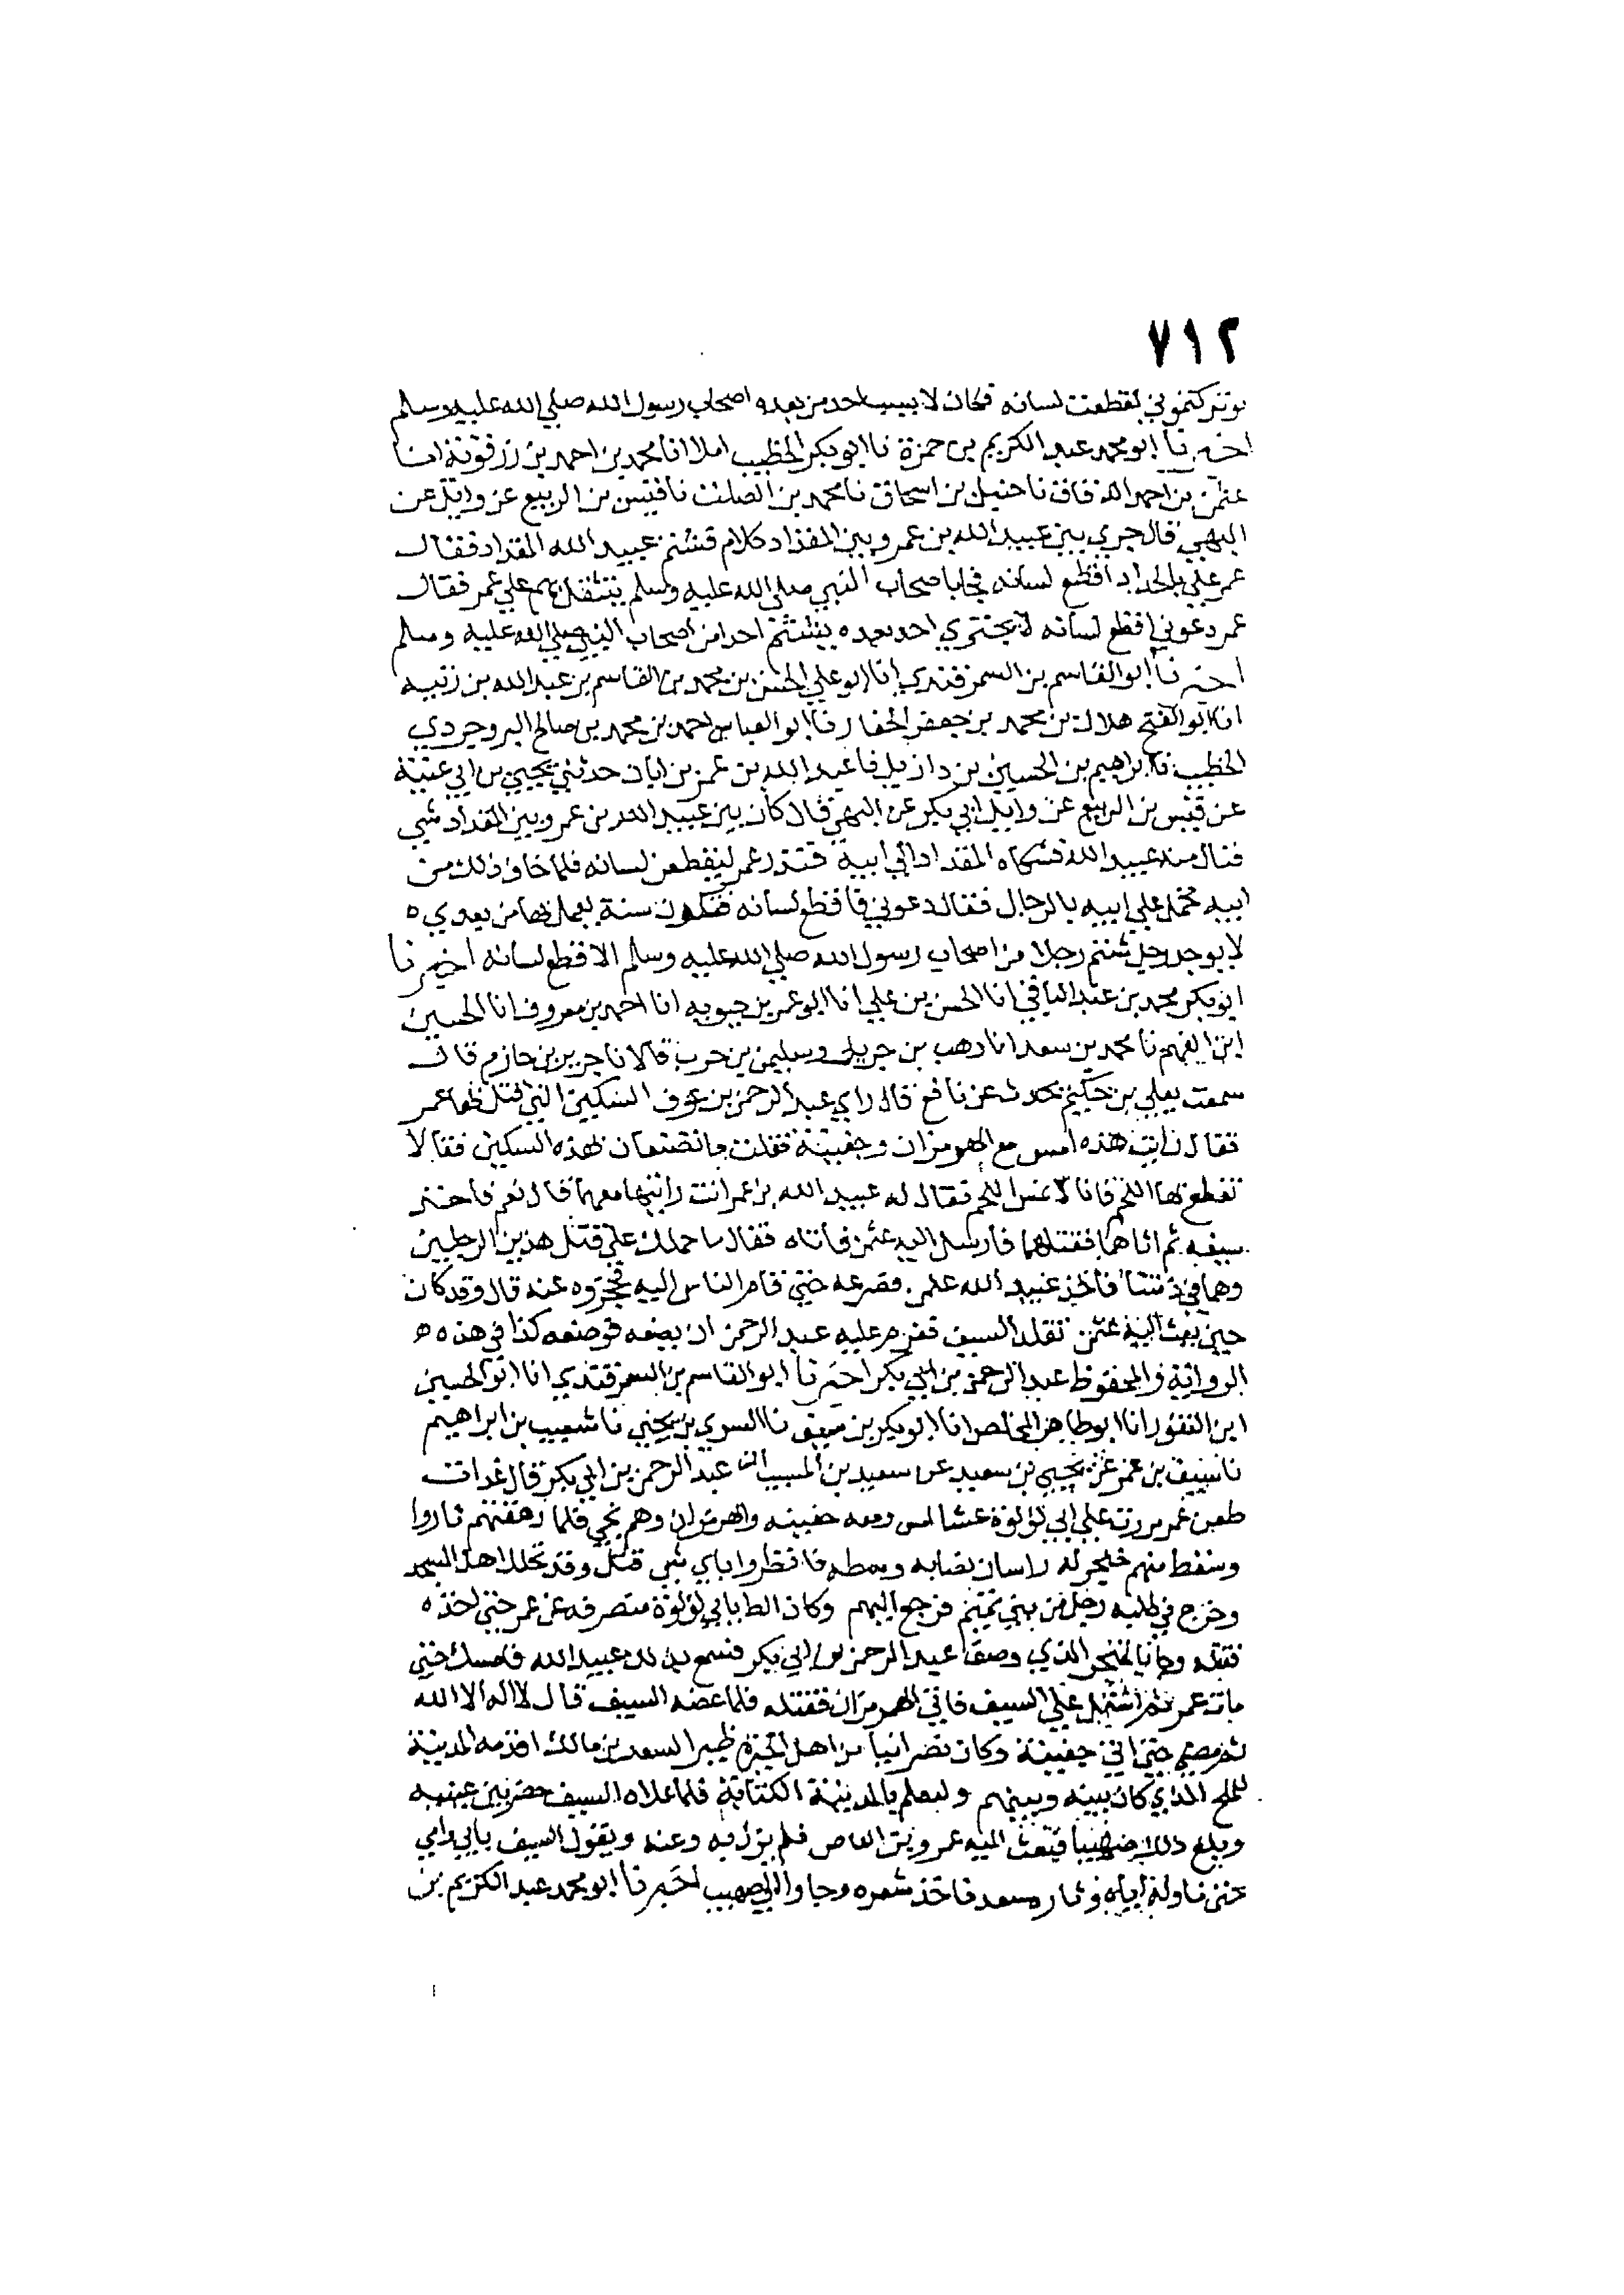 ٧١٢
لو تركتموني لقطعت لسانه فكان لا يسب احد من بعده اصحاب رسول الله صلي الله عليه وسلم
اخبرنا ابو محمد عبد الكريم بن حمزة نا ابو بكر الخطيب املا انا محمد بن احمد بن رزقونة انا
عثمن بن احمد الدقاق نا حنبل بن اسحاق نا محمد بن الصلت نا قيس بن الربيع عن وايل عن
البهي قال جري بين عبيد الله بن عمر وبين المقداد كلام فشتم عبيد الله المقداد فقال
عمر علي بالحداد اقطع لسانه فجا اصحاب النبي صلي الله عليه وسلم يتثقل بهم علي عمر فقال
عمر دعوني اقطع لسانه لا يجتري احد بعده يشتم احدا من اصحاب النبي صلي الله عليه وسلم
اخبرنا ابو القاسم بن السمرقندي انا ابو علي الحسن بن محمد بن القاسم بن عبد الله بن زنيبه
انا ابو الفتح هلال بن محمد بن جعفر الحفار نا ابو العباس احمد بن محمد بن صالح البروجردي
الخطيب نا ابراهيم بن الحسين بن دازيل نا عبد الله بن عمر بن ابان حدثني يحيي بن ابي عتبة
عن قيس بن الربيع عن وايل ابي بكر عن البهي قال كان بين عبيد الله بن عمر وبين المقداد شي
فنال منه عبيد الله فشكاه المقداد الي ابيه فنذر عمر ليقطعن لسانه فلما خاف ذلك من
ابيه تحمل علي ابيه بالرجال فقال دعوني فاقطع لسانه فتكون سنة يعمل بها من بعدي ه
لا يوجد رجل شتم رجلا من اصحاب رسول الله صلي الله عليه وسلم الا قطع لسانه اخبرنا
ابو بكر محمد بن عبد الباقي انا الحسن بن علي انا ابو عمر بن حيويه انا احمد بن معروف انا الحسين
ابن الفهم نا محمد بن سعد انا وهب بن جرير وسليمن بن حرب قالا نا جرير بن حازم قال
سمعت يعلي بن حكيم يحدث عن نافع قال راي عبد الرحمن بن عوف السكين التي قتل بها عمر
فقال رايت هذه امس مع الهرمزان وجفينة فقلت ما تصنعان بهذه السكين فقالا
نقطع بها اللحم فانا لا نمس اللحم فقال له عبيد الله بن عمر انت رايتها معهما قال نعم فاخذ
سيفه ثم اتاهما فقتلهما فارسل اليه عثمن فاتاه فقال ما حملك علي قتل هذين الرجلين
وهما في ذمتنا فاخذ عبيد الله عثمن فصرعه حتي قام الناس اليه فحجزوه عنه قال وقد كان
حين بعث اليه عثمن تقلد السيف فعزم عليه عبد الرحمن ان يضعه فوضعه كذا في هذه ه
الرواية والمحفوظ عبد الرحمن بن ابي بكر اخبرنا ابو القاسم بن السمرقندي انا ابو الحسين
ابن النقور انا ابو طاهر المخلص انا ابو بكر بن سيف نا السري بن يحيي نا شعيب بن ابراهيم
نا سيف بن عمر عن يحيي بن سعيد عن سعيد بن المسيب ان عبد الرحمن بن ابي بكر قال غداة
طعن عمر مررت علي ابي لؤلؤة عشا امس ومعه جفينه والهرمزان وهم نجي فلما رهقتهم ثاروا
وسقط منهم خنجر له راسان نصابه وسطه فانظروا باي شي قتل وقد تخلل اهل المسجد
وخرج في طلبه رجل من بني تميم فرجع اليهم وكان الظ بابي لؤلؤة منصرفه عن عمر حتي اخذه
فقتله وجا بالخنجر الذي وصف عبد الرحمن بن ابي بكر فسمع بذلك عبيد الله فامسك حتي
مات عمر ثم اشتمل علي السيف فاتي الهرمزان فقتله فلما عضه السيف قال لا اله الا الله
ثم مضي حتي اتي جفينة وكان نصرانيا من اهل الحيرة ظيرا لسعد بن مالك اقدمه المدينة
للملح الذي كان بينه وبينهم وليعلم بالمدينة الكتابة فلما علاه السيف صر بين عينيه
وبلغ ذلك صهيبا فبعث اليه عمرو بن العاص فلم يزل به وعنه ويقول السيف بابي وامي
حتي ناوله اياه وثاره سعد فاخذ شعره وجاوا الي صهيب اخبرنا ابو محمد عبد الكريم بن